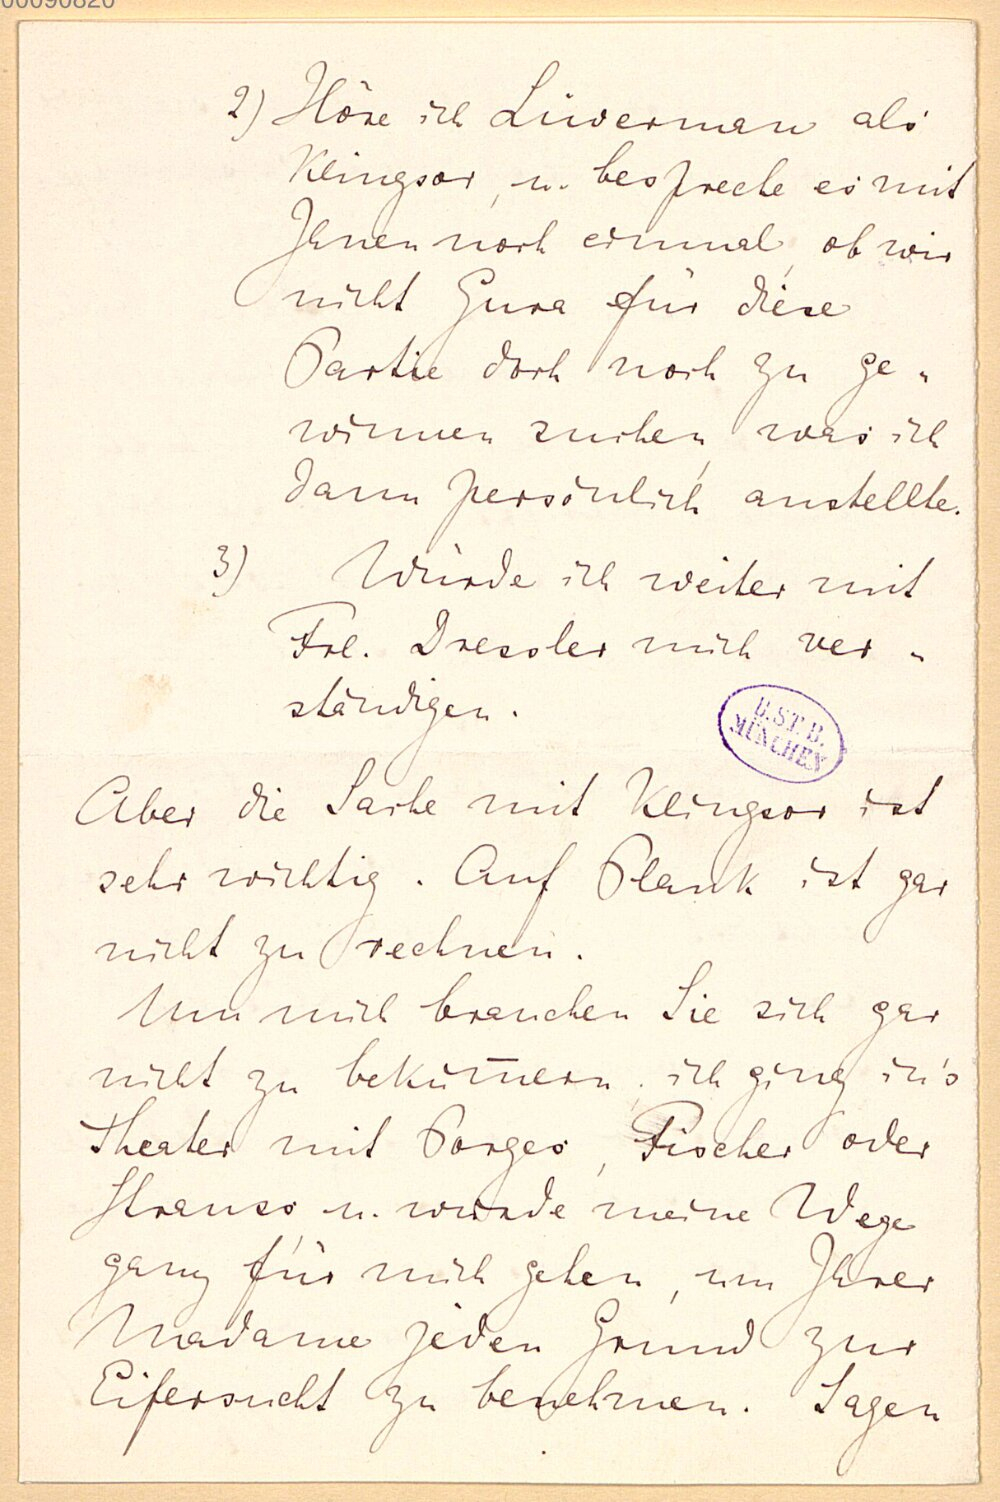 00090820
2) Höre ich Liverman als
Klingsor, u. bespreche es mit
Ihnen noch einmal, ob wir
nicht Gura für diese
Partie doch noch zu ge„
winnen suchen, was ich
dann persönlich anstellte.
3) Würde ich weiter mit
Frl. Dressler mich ver„
ständigen.
B.ST.B.
MÜNCHEN
Aber die Sache mit Klingsor ist
sehr wichtig. Auf Plank ist gar
nicht zu rechnen.
Um mich brauchen Sie sich gar
nicht zu beküm̄ern, ich ging in's
Theater mit Porges, Fischer oder
Strauss u. würde meine Wege
ganz für mich gehen, um Ihrer
Madame jeden Grund zur
Eifersucht zu benehmen. Sagen